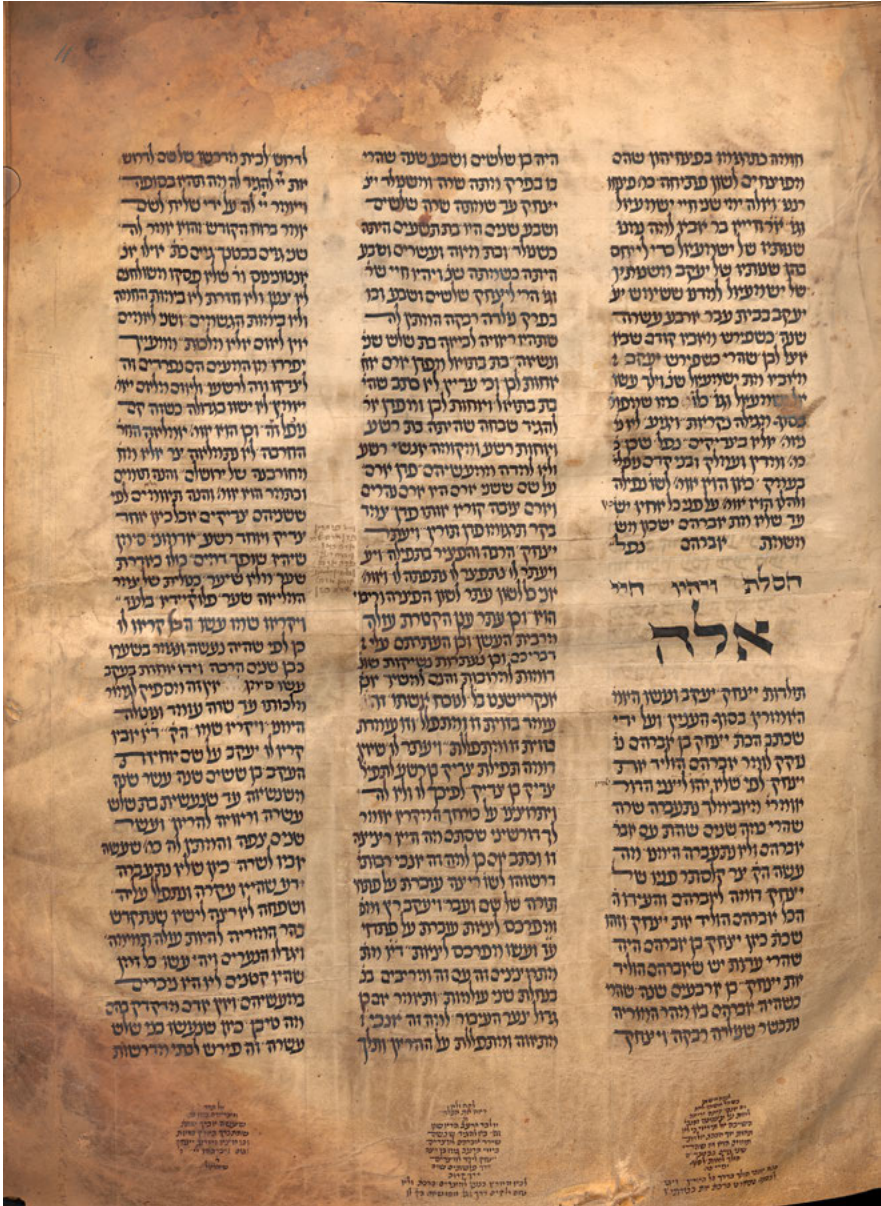 חומה כתרגומו בפציחיהון שהם
מפוצחים לשון פתיחה כמ׳ פיצחו
רננו ואלה ימי שני חיי ישמעאל
וגו׳ א״ר חייא בר אבין למה נמנו
שנותיו של ישמעאל כדי לייחס
בהן שנותיו של יעקב משנותיו
של ישמעאל למדנו ששימש יע
יעקב בבית עבר ארבע עשרה
שנה כשפירש מאביו קודם שבא
אצל לבן שהרי כשפירש יעקב
מאביו מת ישמעאל שנ׳ וילך עשו
אל ישמעאל וגו׳ כמו שמפו׳
בסוף מגילה נקראת ויגוע לא נ
נאמ׳ אלא בצדיקים נפל שכן
כמ׳ ומדין ועמלק ובני קדם נפלי׳
בעמק כאן הוא אומ׳ לשו׳ נפילה
ולהלן הוא אומ׳ על פני כל אחיו ישכן
עד שלא מת אברהם ישכון מש
משמת אברהם נפל
חסלת ויהיו חיי
אלה
תולדות יצחק יעקב ועשו האמו
האמורין בסוף העניין ועל ידי
שכתב הכת׳ יצחק בן אברהם נז
נזקק לומר אברהם הוליד את
יצחק לפי שליצני הדור
אומרי׳ מאבימלך נתעברה שרה
שהרי כמה שנים שהת עם אבר
אברהם ולא נתעברה הימנו מה
עשה הק׳ צר קלסתר פניו של
יצחק דומה לאברהם והעידו ה
הכל אברהם הוליד את יצחק וזהו
שכת׳ כאן יצחק בן אברהם היה
שהרי עדות יש שאברהם הוליד
את יצחק בן ארבעים שנה שהרי
כשהיה אברהם בא מהר המוריה
נתבשר שנולדה רבקה ויצחק
היה בן שלשים ושבע שנה שהרי
בו בפרק מתה שרה ומשנולד יצ
יצחק עד שמתה שרה שלשים
ושבע שנים היו בת תשעים היתה
כשנולד ובת מאה ועשרים ושבע
היתה כשמתה שנ׳ ויהיו חיי שר׳
וגו׳ הרי ליצחק שלשים ושבע ובו
בפרק נולדה רבקה המתין לה
שתהיה ראויה לביאה בת שלש שני׳
ונשאה בת בתואל מפדן ארם אח׳
אחות לבן וכי עדיין לא כתב שהי׳
בת בתואל ואחות לבן ומפדן אר׳
להגיד שבחה שהיתה בת רשע
ואחות רשע ומקומה אנשי רשע
ולא למדה ממעשיהם פדן ארם
על שם ששני ארם היו ארם נהרים
וארם צובה קוריו אותו פדן צמד
בקר תרגומו פדן תורין ויעתר
יצחק הרבה והפציר בתפילה ויע
ויעתר לו נתפצר לו נתפתה לו ואומ׳
אני כל לשון עתר לשון הפצרה וריבוי
הוא וכן עתר ענן הקטרת עולה
מרבית העשן וכן העתרתם עלי
דבריכם וכן נעתרות נשיקות שונ׳
דומות למרובות והנם למשוי אנ
אנקריישנט בל׳ לנוכח אשתו זה
עומד בזוית זו ומתפלל וזו עומדת
בזוית זו ומתפללת ויעתר לו שאין
דומה תפילת צדיק בן רשע לתפיל׳
צדיק בן צדיק לפיכך לו ולא לה
ויתרוצצו על כרחך המקרא אומר
לך דורשיני שסתם מה היא רציצה
זו וכתב אם כן למה זה אנכי רבותי׳
דרשוהו לשו׳ ריצה עוברת על פתחי
תורה של שם ועבר ויעקב רץ ומפ
ומפרכס לצאת עוברת על פתחי
ע״ז ועשו מפרכס לצאת ד״א מת
מתרוצצים זה עם זה ומריבים בנ
בנחלת שני עולמות ותאמר אם כן
גדול צער העיבור למה זה אנכי
מתאוה ומתפללת על ההריון ותלך
לדרוש לבית מדרשו של שם לדרוש
את יי׳ להגיד לה מה תהא בסופה
ויאמר יי׳ לה על ידי שליח לשם
אמר ברוח הקודש והוא אמר לה
שני גוים בבטנך גיים כת׳ אילו אנ׳
אנטונינוס ור׳ שלא פסקו משולחנם
לא צנון ולא חזרת לא בימות החמה
ולא בימות הגשמים ושני לאומים
אין לאום אלא מלכות ממעיך
יפרדו מן המעים הם נפרדים זה
לצדקו וזה לרשעו ולאום מלאום יאמ׳
יאמץ לא ישוו בגדולה כשזה קם
נופל זה וכן הוא אומ׳ אמלאה החר׳
החרבה לא נתמלאה צר אלא מח
מחורבנה של ירושלם והנה תומים
ובתמר הוא אומ׳ והנה תאומים לפי
ששניהם צדיקים אבל כאן אחד
צדיק ואחד רשע אדמוני סימן
שיהא שופך דמים כולו כאדרת
שער מלא שיער כטלית של צמר
המליאה שער פלוקיידא בלעז
ויקראו שמו עשו הכל קראו לו
כן לפי שהיה נעשה ונגמר בשערו
כבן שנים הרבה וידו אוחזת בעקב
עשו סימן אין זה מספיק לגמור
מלכותו עד שזה עומד ונוטלה
הימנו ויקרא שמו הק׳ ד״א אביו
קרא לו יעקב על שם אחיזת
העקב בן ששים שנה עשר שנה
משנשאה עד שנעשית בת שלש
עשרה וראויה להריון ועשר
שנים צפה והמתין לה כמ׳ שעשה
אביו לשרה כיון שלא נתעברה
ידע שהיא עקרה ונתפלל עליה
ושפחה לא רצה לישא שנתקדש
בהר המוריה להיות עולה תמימה
ויגדלו הנערים ויהי עשו כל זמן
שהיו קטנים לא היו ניכרים
במעשיהם ואין אדם מדקדק בהם
מה טיבן כיון שנעשו בני שלש
עשרה זה פירש לבתי מדרשות